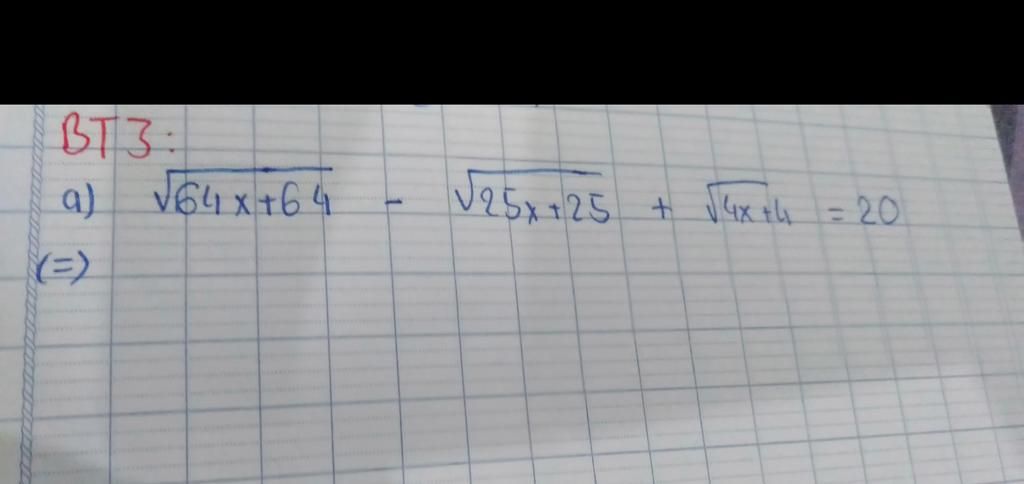 BT3:
a) √64x+64 - √25x+25 + √4x+4 = 20
(=)